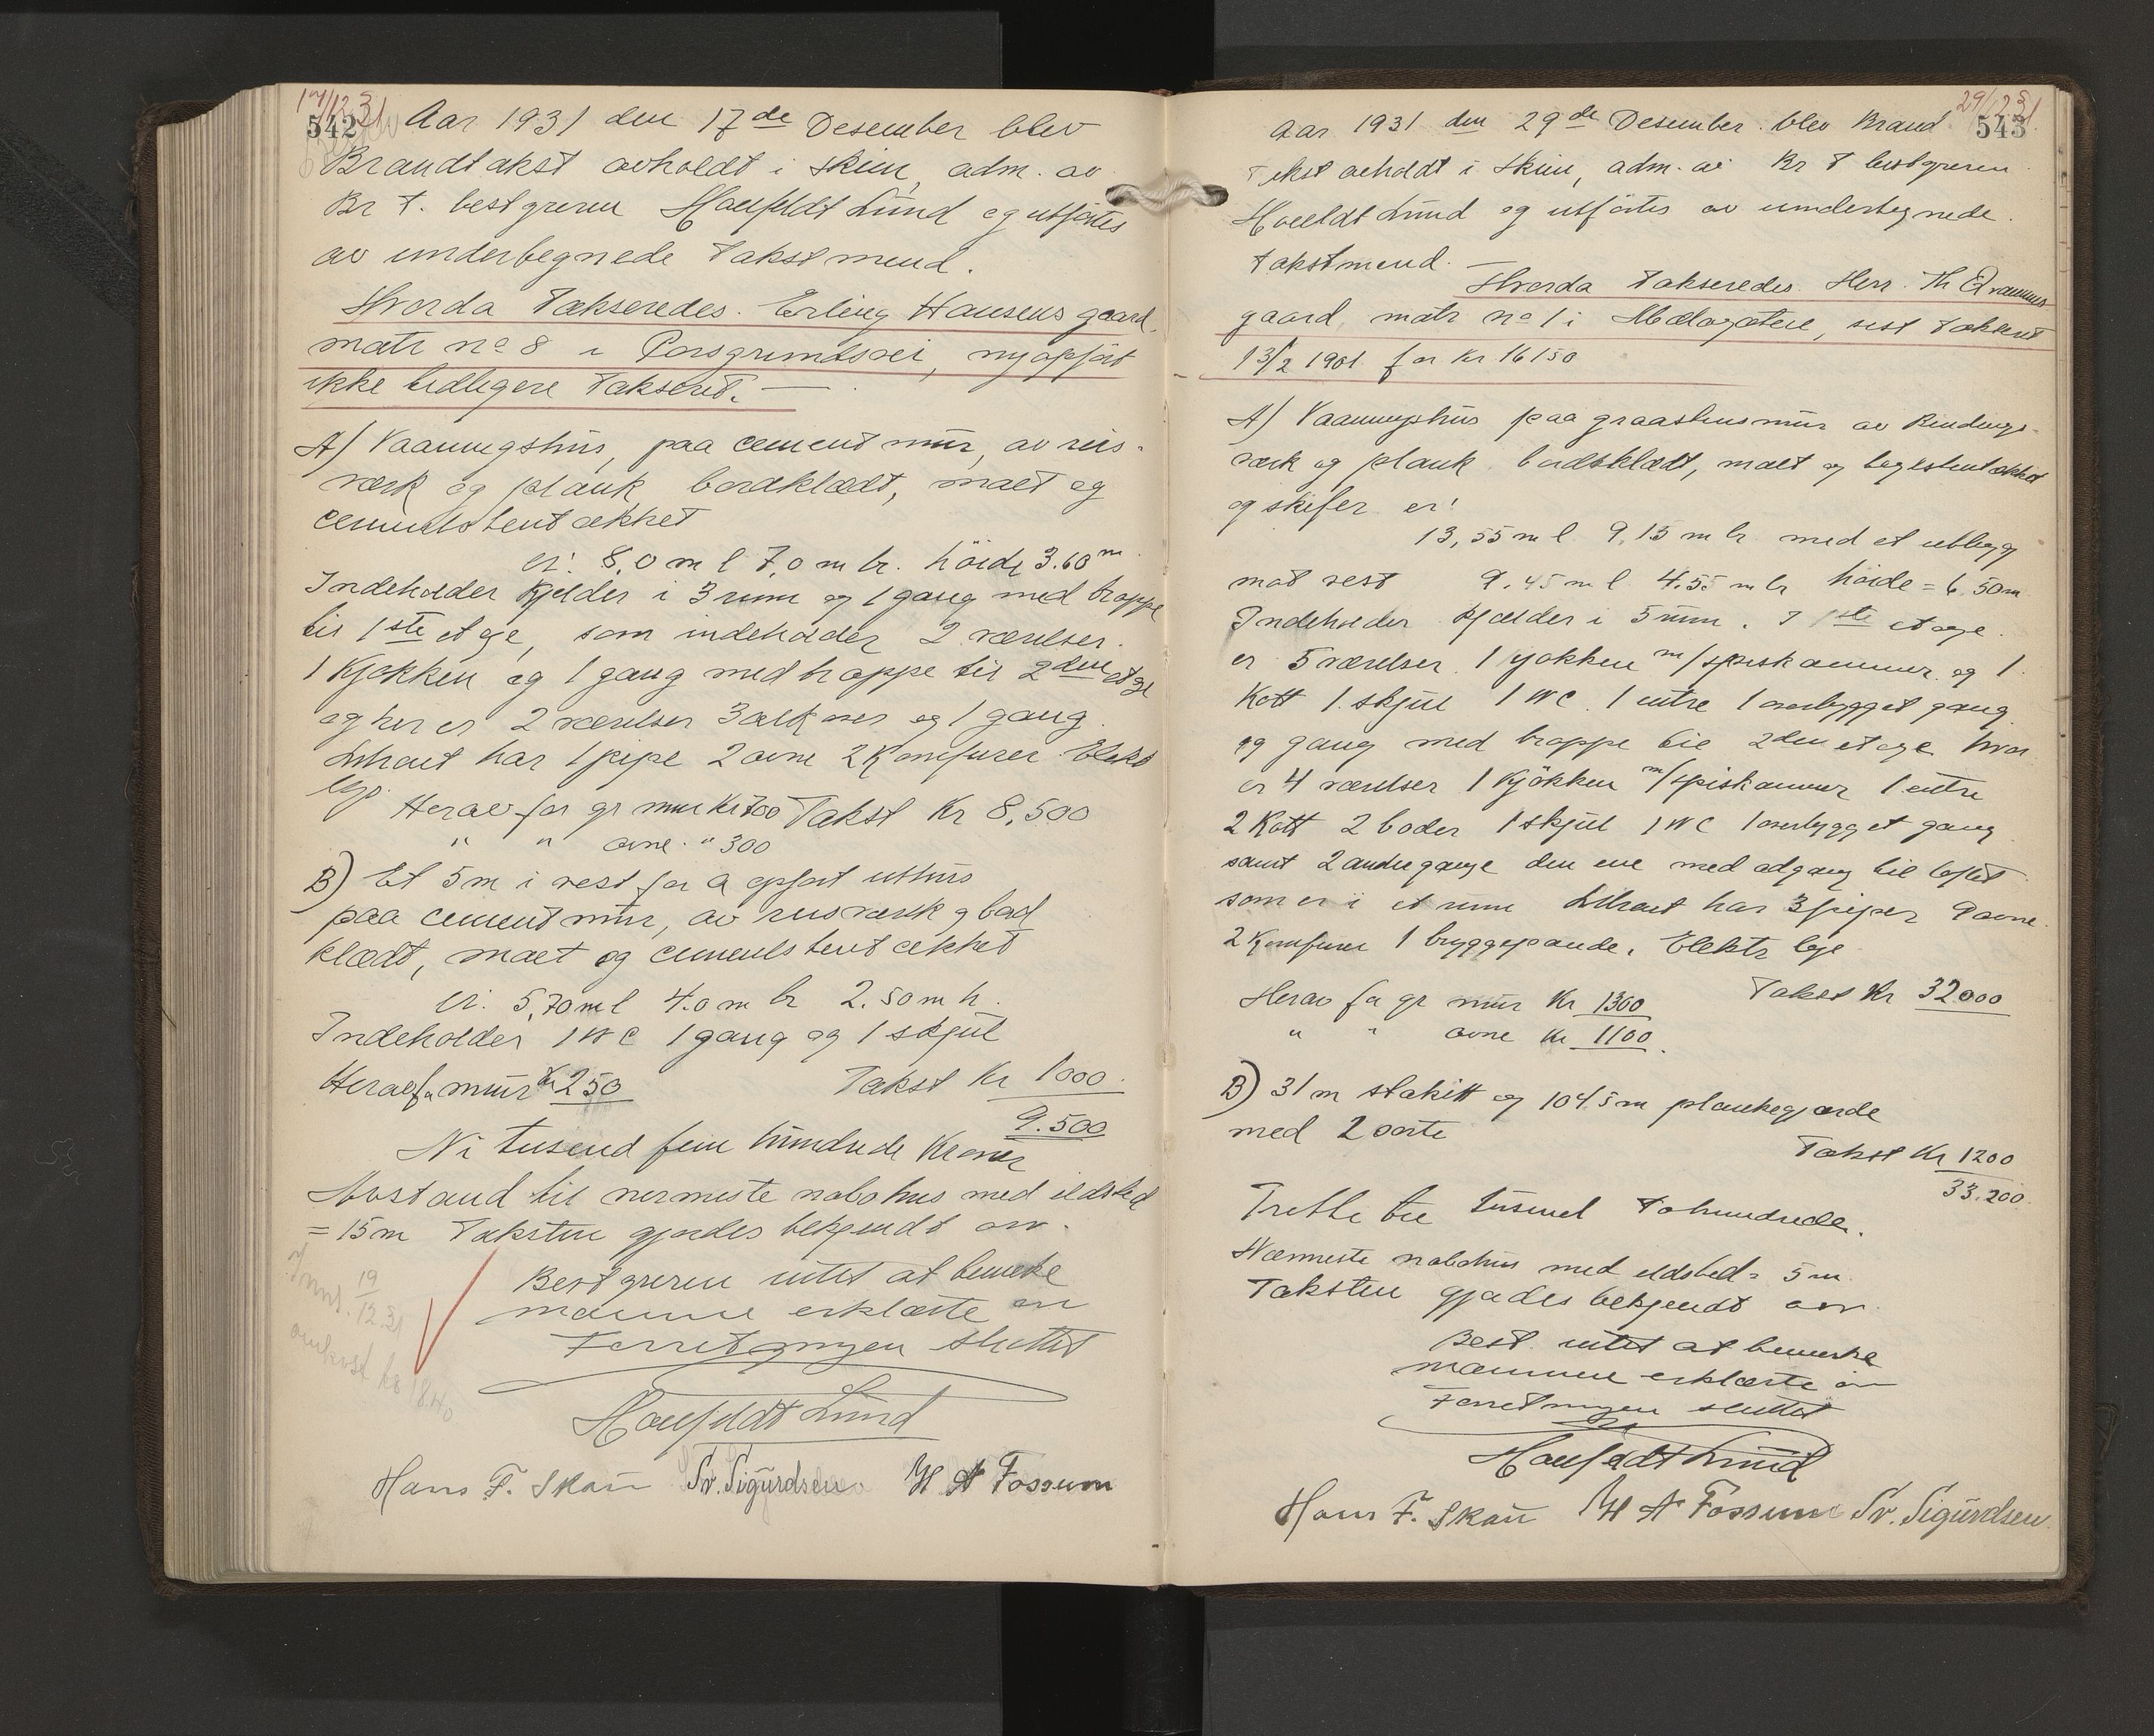 17/12 31
542 Aar 1931 den 17de Desember blev
Brandtakst avholdt i Skien, adm. av
Br T. bestyreren Haufeldt Lund og utførtes
av undertegnede Takstmend.
Hvorda Takseredes. Erling Hansens gaard,
matr no 8 i Porsgrundsvei, nyopført
ikke tidligere Takseret. —
A) Vaaningshus, paa cement mur, av reis-
værk og plank bordklædt, malt og
cementstentækket
er: 8,0 m l 7,0 m br. höide 3.60 m
Indeholder Kjelder i 3 rum og 1 gang med trappe
til 1ste etage, som indeholder 2 værelser.
1 Kjøkken og 1 gang med trappe til 2den etage
og her er 2 værelser 3 alkover og 1 gang.
Likaet har 1 pipe 2 ovne 2 Komfurer Elekt
lys.
Herav for gr mur Kr 700 Takst Kr 8,500
" " ovne " 300
B) Et 5 m i vest for A opført uthus
paa cement mur, av reisværk og bord
klædt, malt og cementstentækket
er: 5,70 m l 4.0 m br 2.50 m h.
Indeholder 1 WC 1 gang og 1 skjul
Herav fa mur Kr 250 Takst Kr 1000.
9.500
Ni tusend fem hundrede Kroner
Avstand til nermeste nabohus med ildsted
= 15 m Taksten gjordes bekjendt ov.
Bestyreren intet at bemerke
mænnene erklærte ov
Forretningen sluttet
Haufeldt Lund
Hans F. Skau Sv. Sigurdsen H A Fossum
19
12.31
omkost kr 18.40
29/12 31
543
Aar 1931 den 29de Desember blev Brand
Takst avholdt i Skien, adm. av Br T bestyreren
Haufeldt Lund og utførtes av undertegnede
takstmend. —
Hvorda Takseredes Herr Th
gaard, matr no 1 i Mælagaten, sist Takseret
13/2 1901 for Kr 16150
A) Vaaningshus paa graastensmur av Bindings-
værk og plank bordsklædt, malt og teglstentækket
og skifer er:
13,55 m l 9,15 m br med et utbygg
mot vest 9.45 m l 4.55 m br höide = 6,50 m
Indeholder Kjælder i 5 rum. I 1ste etage
er 5 værelser 1 kjøkken m/spiskammer og 1
Kott 1 skjul 1 WC 1 entre 1 overbygget gang
og gang med trappe til 2den etage hvor
er 4 værelser 1 Kjökken m/spiskammer 1 entre
2 Kott 2 boder 1 skjul 1 WC 1 overbygget gang
samt 2 andre gange den ene med adgang til loftet
som er i et rum Likaet har 3 piper 9 ovne
2 Komfurer 1 bryggepande. Elektr lys
Herav fa gr mur Kr 1300 Takst Kr 32000
" " ovne Kr 1100.
B) 31 m stakitt og 104,5 m plankegjærde
med 2 porte
Takst Kr 1200
33.200
Tretti tre tusend Tohundrede.
Nærmeste nabohus med ildsted = 5 m.
Taksten gjordes bekjendt ov.
Best. intet at bemerke
mænnene erklærte ov
Forretningen sluttet
Haufeldt Lund
Hans F. Skau H A Fossum Sv. Sigurdsen